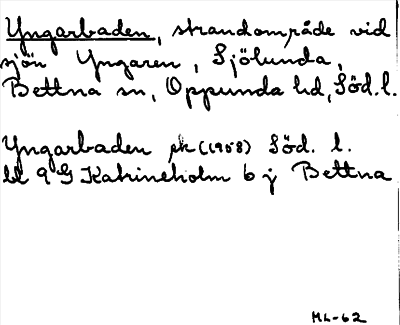 Yngarbaden, strandområde vid
sjön Yngaren, Sjölunda,
Bettna sn, Oppunda hd, Söd. l.
Yngarbaden ek (1958) Söd. l.
bl 9 G Katrineholm 6 j Bettna
ML-62